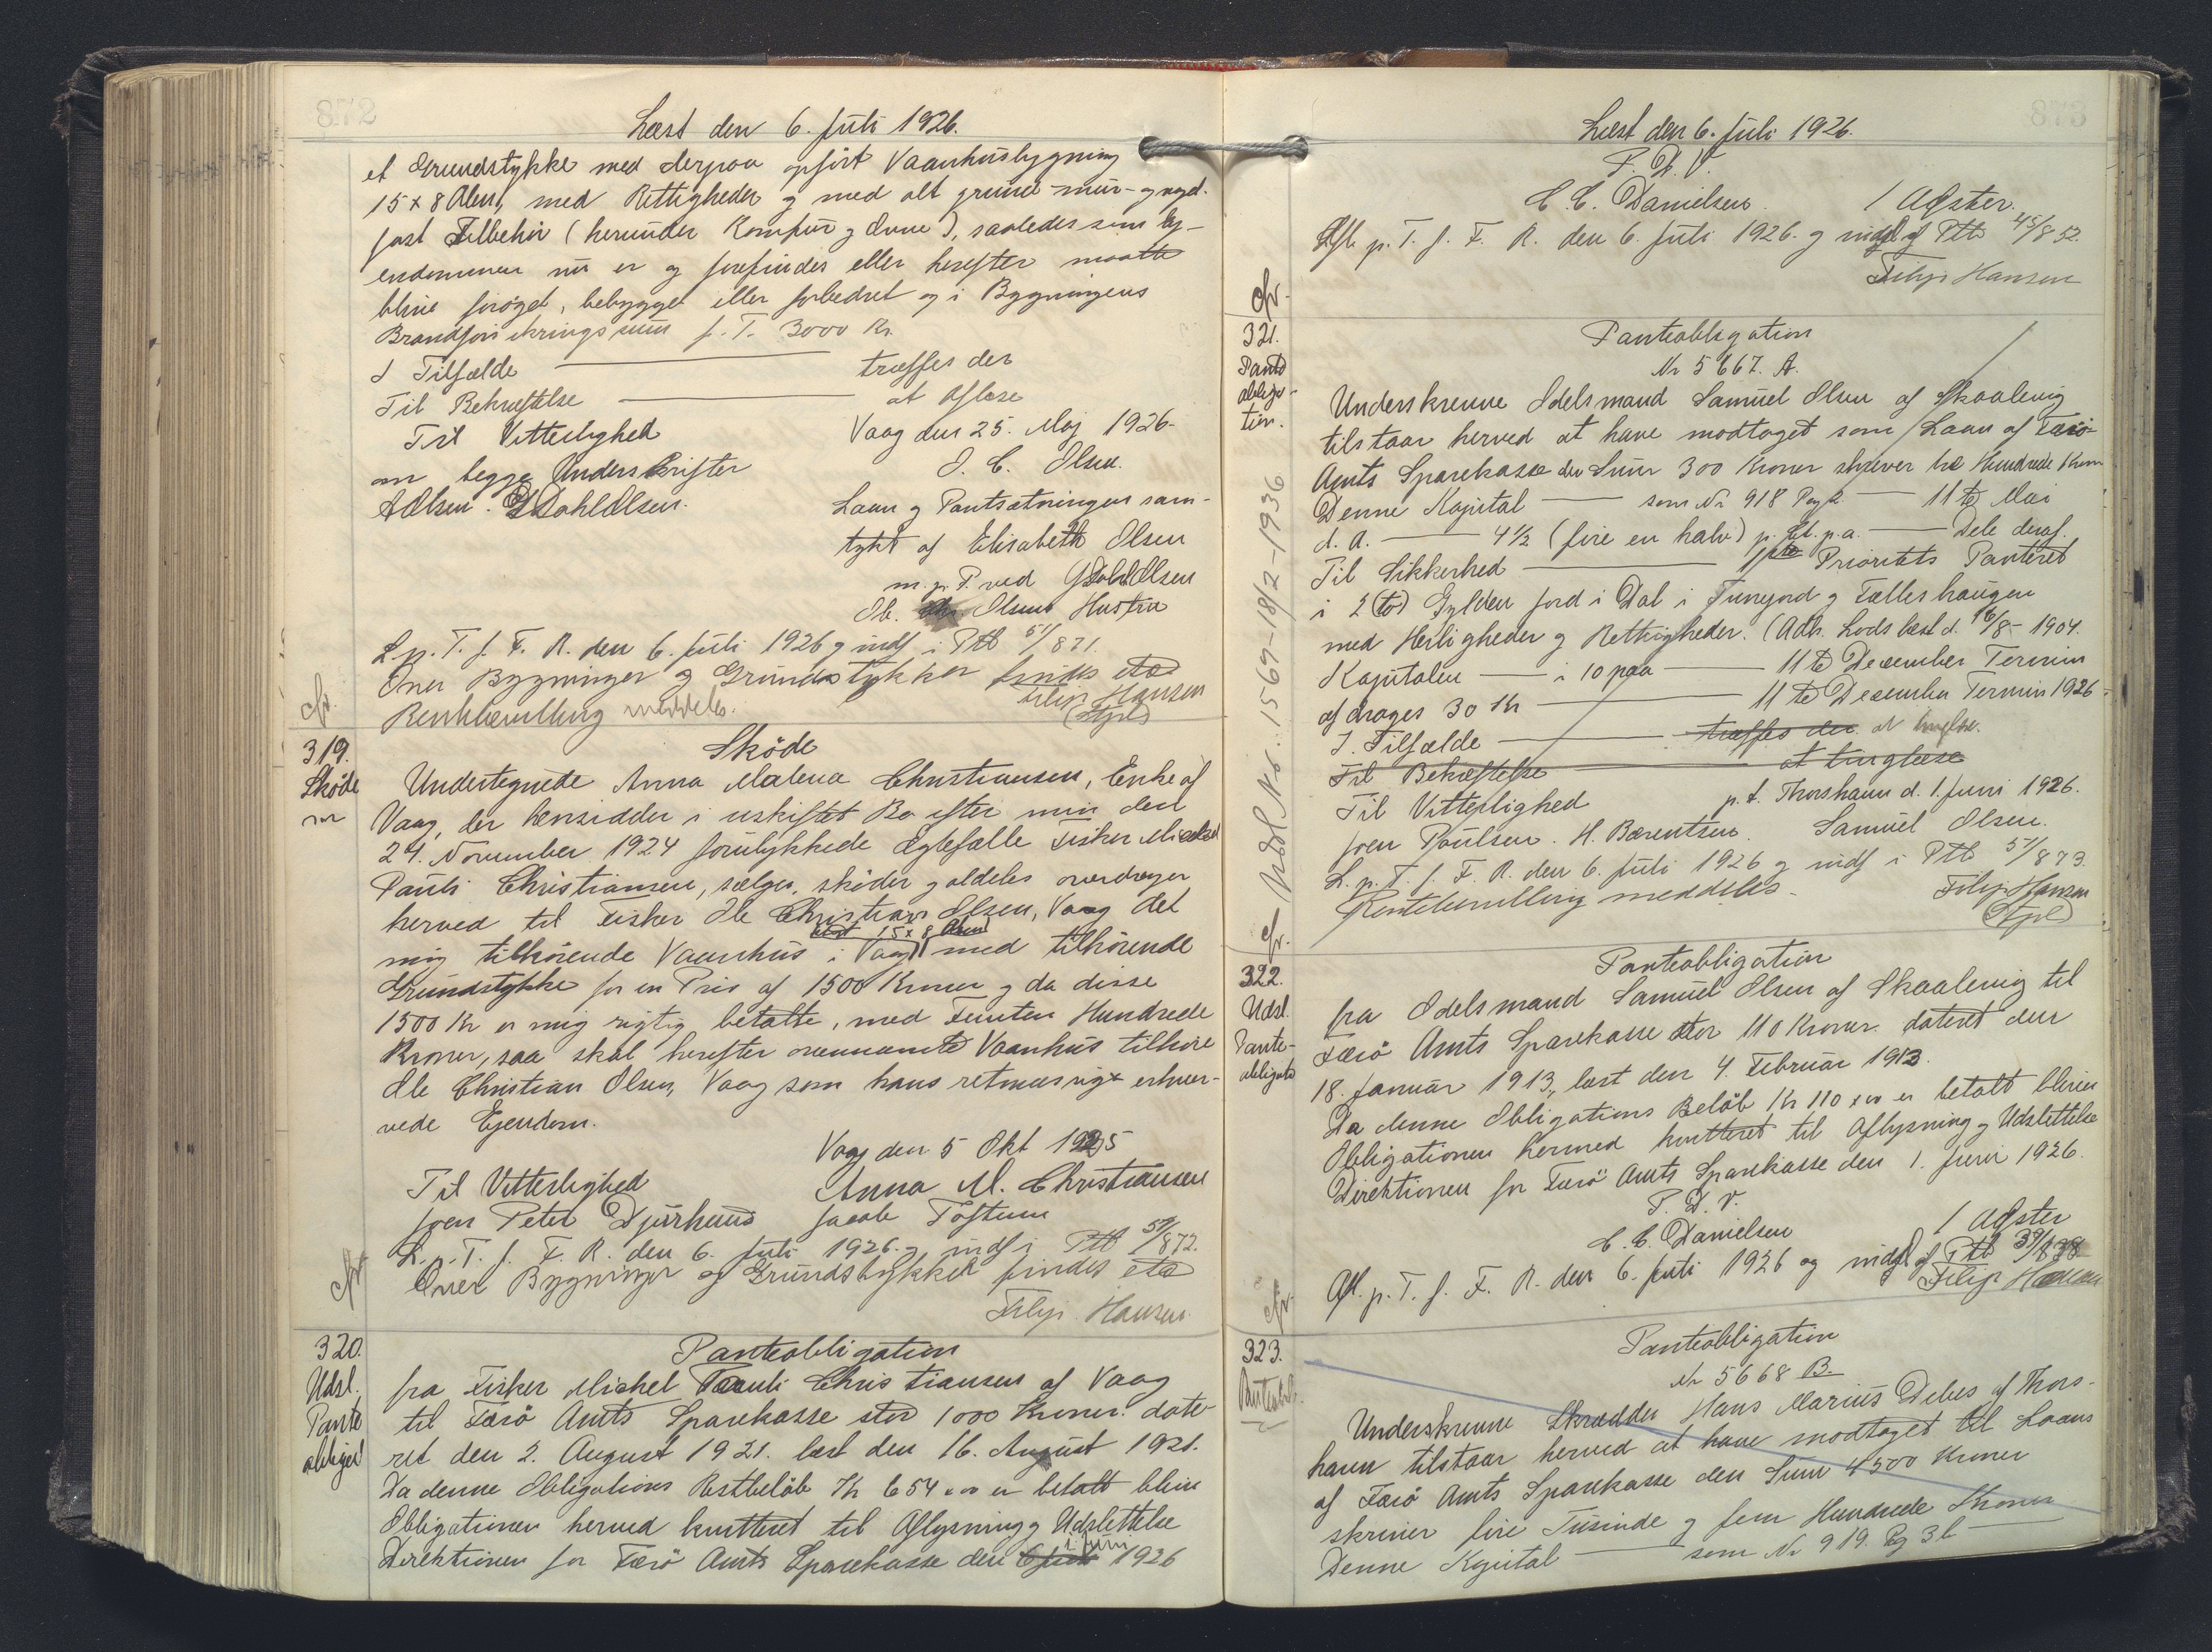 872
Læst den 6. Juli 1926.
et Grundstykke med derpaa opført Vaanhusbygning
15 x 8 Alen, med Rettigheder og med alt grund- mur- og nagl-
fast Tilbehør (herunder Komfur og Ovne), saaledes som Ej-
endommen nu er og forefindes eller herefter maatte
blive forøget, bebygget eller forbedret og i Bygningens
Brandforsikringssum p. T. 3000 Kr.
I Tilfælde — træffes der
Til Bekræftelse — at Aflæse
Til Vitterlighed Vaag den 25. Maj 1926.
om begge Underskrifter O. C. Olsen.
A Olsen. G Dahl Olsen. Laan og Pantsætningen sam-
tykt af Elisabeth Olsen
m. p. P. ved G Dahl Olsen
Ole Chr. Olsens Hustru
L. p. T. f. F. R. den 6. Juli 1926 og indf i Ptb 51/871.
Over Bygninger og Grundstykker findes etc
Filip Hansen
Rentebevilling meddeles.
cfr.
319.
Skøde
Skøde
Undertegnede Anna Malena Christiansen, Enke af
Vaag, der hensidder i uskiftet Bo efter min den
24. November 1924 forulykkede Ægtefælle Fisker Mickel
Pauli Christiansen, sælger, skøder og aldeles overdrager
herved til Fisker Ole Christian Olsen, Vaag det
15 x 8 Alen
mig tilhørende Vaanhus i Vaag med tilhørende
Grundstykke for en Pris af 1500 Kroner og da disse
1500 Kr er mig rigtig betalte, med Femten Hundrede
Kroner, saa skal herefter ovennævnte Vaanhus tilhøre
Ole Christian Olsen, Vaag som hans retmæssigt erhver-
vede Ejendom.
Vaag den 5 Okt 1925
Til Vitterlighed Anna M. Christiansen
Joen Peter Djurhuus Jacob Toftum
L. p. T. f. F. R. den 6. Juli 1926 og indf i Ptb 51/872.
Over Bygninger og Grundstykket findes etc
Filip Hansen
cfr
320.
Udsl.
Pante
obligat
Panteobligation
fra Fisker Mickel Pauli Christiansen af Vaag
til Færø Amts Sparekasse stor 1000 Kroner. date-
ret den 2. August 1921. læst den 16. August 1921.
Da denne Obligations Restbeløb Kr 654 x 00 er betalt blive
Obligationen herved kvitteret til Aflysning og Udslettelse
Direktionen for Færø Amts Sparekasse den 6 Juli 1. Juni 1926
873
Læst den 6. Juli 1926.
P. D. V.
C. C. Danielsen. / Agster.
Afl. p. T. f. F. R. den 6. Juli 1926. og indf af Ptb 45/852.
Filip Hansen
cfr.
321.
Pante
obliga-
tion.
Panteobligation
Nr 5667. A.
Underskrevne Odelsmand Samuel Olsen af Skaalevig
tilstaar herved at have modtaget som Laan af Færø
Amts Sparekasse den Sum 300 Kroner skriver tre Hundrede Kroner
Denne Kapital — som Nr 918 Pag 2 — 11te Mai
d. A. — 4½ (fire en halv) p. Ct. p. a. — Dele deraf.
Til Sikkerhed — 1ste Prioritets Panteret
i 2 (to) Gylden Jord i Dal i og Fælleshaugen
med Herligheder og Rettigheder. (Adk. Lods læst d. 16/8 - 1904.
Kapitalen — i 10 paa — 11te December Termin
afdrages 30 Kr — 11te December Termin 1926
I Tilfælde — træffes der
Til Bekræftelse — at tinglæse
Til Vitterlighed p. t. Thorshavn d. 1. Juni 1926.
Joen Poulsen. H. Bærentsen. Samuel Olsen.
L. p. T. f. F. R. den 6. Juli 1926 og indf i Ptb 51/873.
Rentebevilling meddeles. Filip Hansen
cfr Nr. 1569-18/2-1936
322.
Udsl.
Pante-
obligat
Panteobligation
fra Odelsmand Samuel Olsen af Skaalevig til
Færø Amts Sparekasse stor 110 Kroner. dateret den
18. Januar 1913, læst den 4. Februar 1913.
Da denne Obligations Beløb Kr 110 x 00 er betalt bliver
Obligationen hermed kvitteret til Aflysning og Udslettelse
Direktionen for Færø Amts Sparekasse den 1. Juni 1926.
P. D. V.
C. C. Danielsen / Agster
Afl. p. T. f. F. R. den 6. Juli 1926 og indf af Ptb 39/838
Filip Hansen
cfr.
323.
Panteobl.
Panteobligation
Nr 5668 B.
Underskrevne Skrædder Hans Marius Debes af Thors-
havn tilstaar herved at have modtaget til Laans
af Færø Amts Sparekasse den Sum 4500 Kroner
skriver fire Tusinde og fem Hundrede Kroner
Denne Kapital — som Nr 919. Pg 36 —